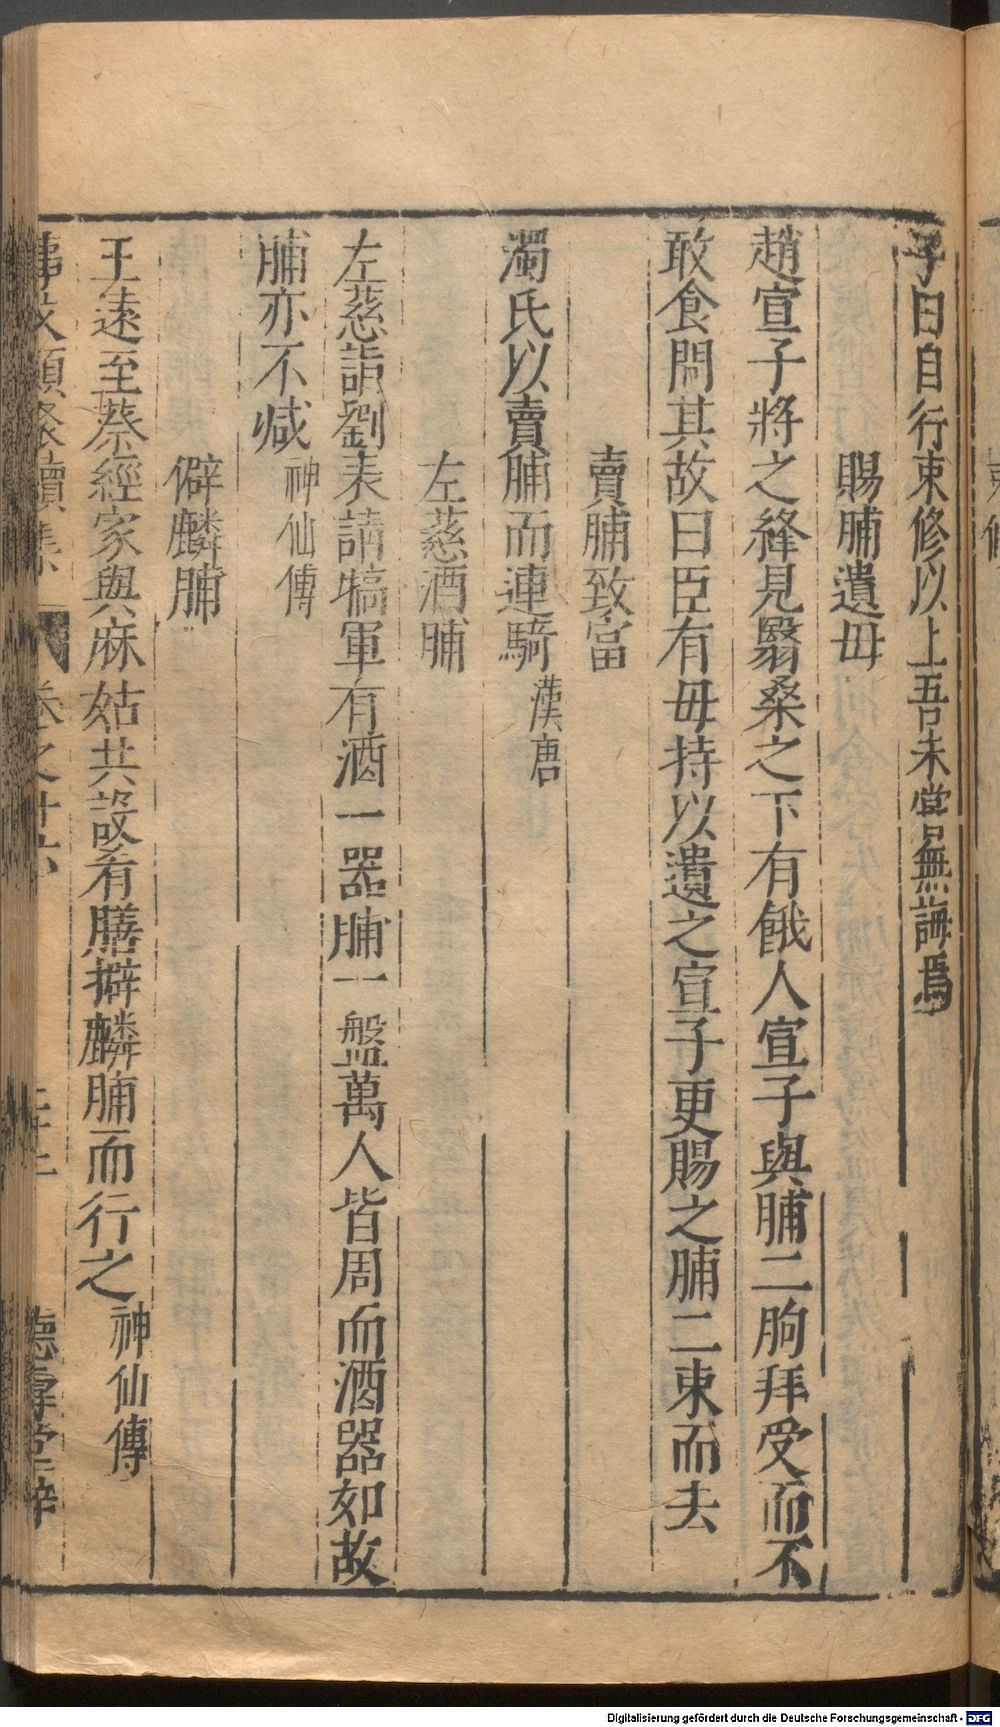 子曰自行束修以上吾未嘗無誨焉
賜脯遺毋
趙宣子將之絳見翳桑之下有餓人宣子與脯二朐拜受而不
敢食問其故曰臣有毋持以遺之宣子更賜之脯二束而去
賣脯致富
濁氏以賣脯而連騎 漢唐
左慈酒脯
左慈詣劉表請犒軍有酒一器脯一盤萬人皆周而酒器如故
脯亦不減 神仙傳
僻麟脯
王遠至蔡經家與麻姑共設肴膳擗麟脯而行之 神仙傳
事文類聚續集 卷之十六 德壽堂梓
束修
Digitalisierung gefördert durch die Deutsche Forschungsgemeinschaft - DFG